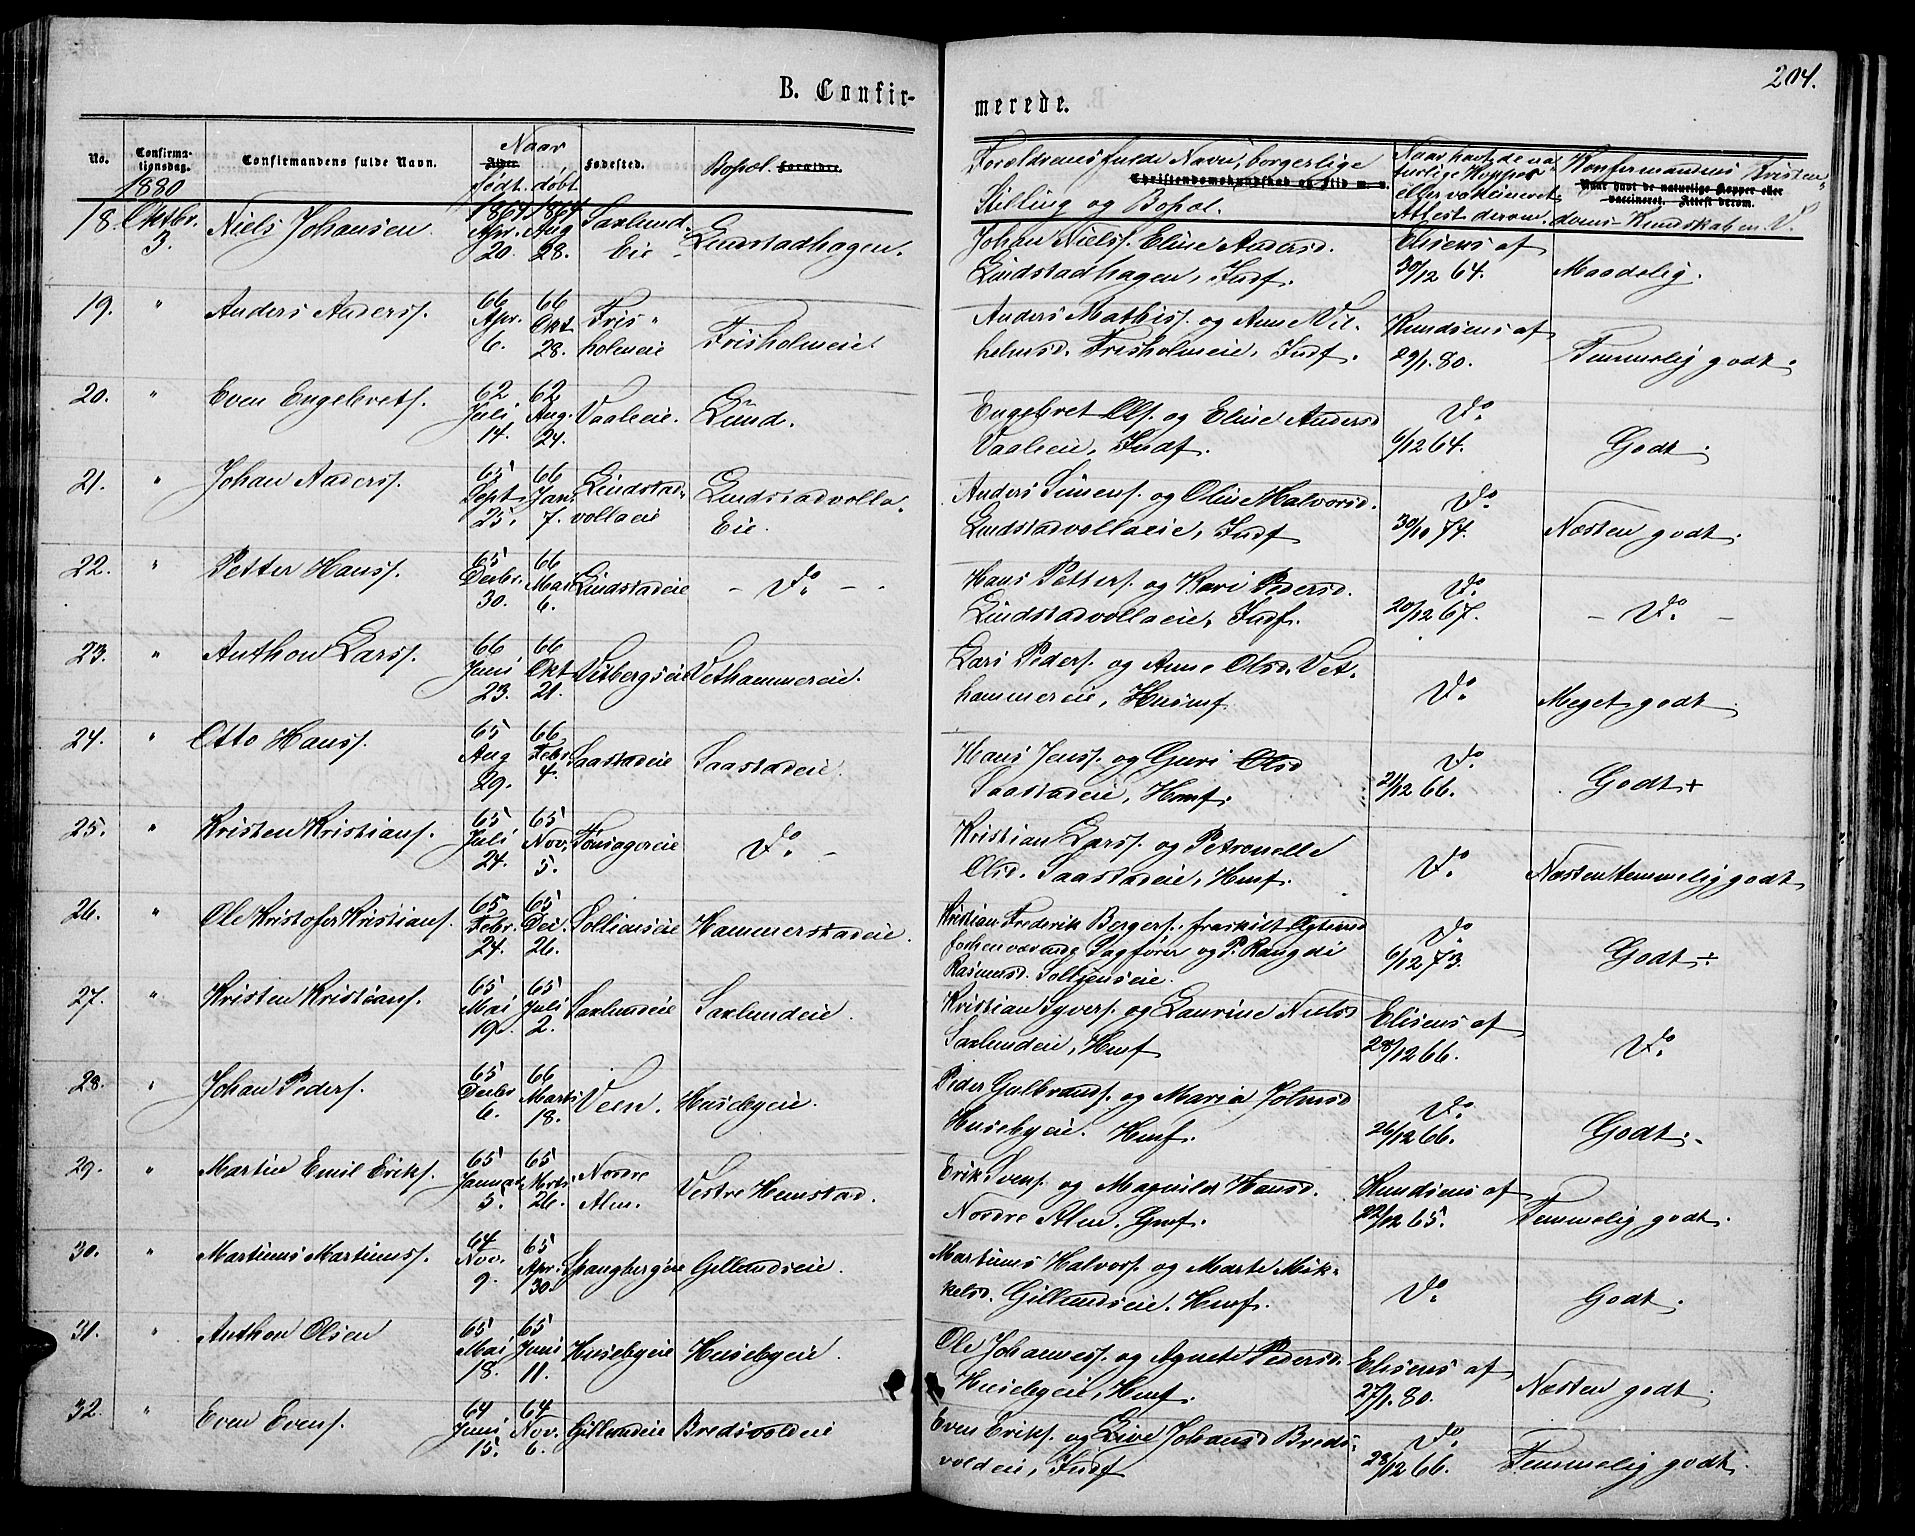 204.
B. Confir-
merede.
No.
Confirma-
tionsdag.
Confirmandens fulde Navn.
Naar
Alder
født. døbt
Fødested.
Bopæl. Forældre
Forældrenes fulde Navn, borgerlige
Christendomskundskab og Flid m. v.
Stilling og Bopæl.
Naar havt de na
turlige Kopper
eller vakcineret.
Attest derom.
Konfirmandens Kristen-
Naar havt de naturlige Kopper eller
vaccineret. Attest derom.
doms-Kundskab m. V.
1880
18. Oktbr. 3. Niels Johansen 1864 Apr. 20. 1864 Aug 28. Saxlund- Eie Lindstadhagen.
Johan Niels. Eline Andersd.
Lindstadhagen, Indf.
Elisens af
30/12 64.
Maadelig.
19. " Anders Anders. 66 Apr. 6. 66 Okt 28. Fris- holmeie Frisholmeie
Anders Mathiss. og Anne Vil-
helmsd. Frisholmeie, Indf.
Knudsens af
29/1. 80.
Temmelig godt.
20. " Even Engebrets. 62 Juli 14. 62 Aug. 24. Vaaleie. Lund.
Engebret Ols. og Eline Andersd
Vaaleie, Indf.
Do
6/12 64.
Godt.
21. " Johan Anderss. 65 Sept 25. 66 Jan 7. Lindstad- vollaeie Lindstadvolla- Eie.
Anders Simens. og Oline Halvorsd.
Lindstadvollaeie, Indf
Do
30/10 74.
Næsten godt.
22. " Petter Hans. 65 Decbr. 30. 66 Mar 6. Lindstadeie - Do -
Hans Petters. og Kari Pedersd.
Lindstadvollaeie, Indf.
Do
20/12 67.
- Do -
23. " Anthon Lars. 66 Juni 23. 66 Okt 21. Vesbergseie Vethammereie.
Lars Peders. og Anne Olsd. Vet-
hammereie, Husmf
Do
Meget godt.
24. " Otto Hans. 65 Aug 29. 66 Febr 4. Saastadeie Saastadeie.
Hans Jenss. og Guri Olsd
Saastadeie, Hmf.
Do
21/12 66.
Godt +
25. " Kristen Kristians. 65 Juli 24. 65 Nov. 5. Tønsagereie Do -
Kristian Larss. og Petronelle
Olsd. Saastadeie, Hmf.
Do
Næsten temmelig godt
26. " Ole Kristofer Kristians. 65 Febr. 24. 65 Dec. 26. Sollienseie Hammerstadeie.
Kristian Frederik Bergers. fraskilt
og P. Rangdi
Rasmusd. Soltjenseie.
Do
6/12 73.
Godt ÷
27. " Kristen Kristians. 65 Mai 19. 65 Juli 2. Saxlundeie Saxlundeie.
Kristian Syvers. og Laurine Nielsd
Saxlundeie, Hmf
Elisens af
28/12 66.
Do
28. " Johan Peders. 65 Decbr 6. 66 Marts 18. Veen. Husebyeie.
Peder Gulbrands. og Maria Johnsd
Husebyeie. Hmf.
Do
26/12 66.
Godt.-
29. " Martin Emil Eriks. 65 Januar 5. 65 Marts 26. Nordre Alm. Vestre Hemstad.
Erik Svens. og Magnild Hansd.
Nordre Alm. Gmf.
Knudsens af
22/12 65.
Temmelig godt.
30. " Martinus Martinuss. 64 Nov. 9. 65 Apr. 30. Spangbergeie Gillundseie.
Martinus Halvors. og Marte Mik-
kelsd. Gillundseie. Hmf.
Do
Godt.
31. " Anthon Olsen 65 Mai 18. 65 Juni 11. Husebyeie Husebyeie.
Ole Johanness. og Agnete Pedersd.
Husebyeie, Hmf.
Elisens af
27/1. 80.
Næsten godt.
32. " Even Evens. 64 Juni 15. 64 Nov. 6. Gillundeie Bredsvoldeie
Even Eriks. og Live Johansd Breds-
voldeie, Indf
Do
28/12 66.
Temmelig godt.